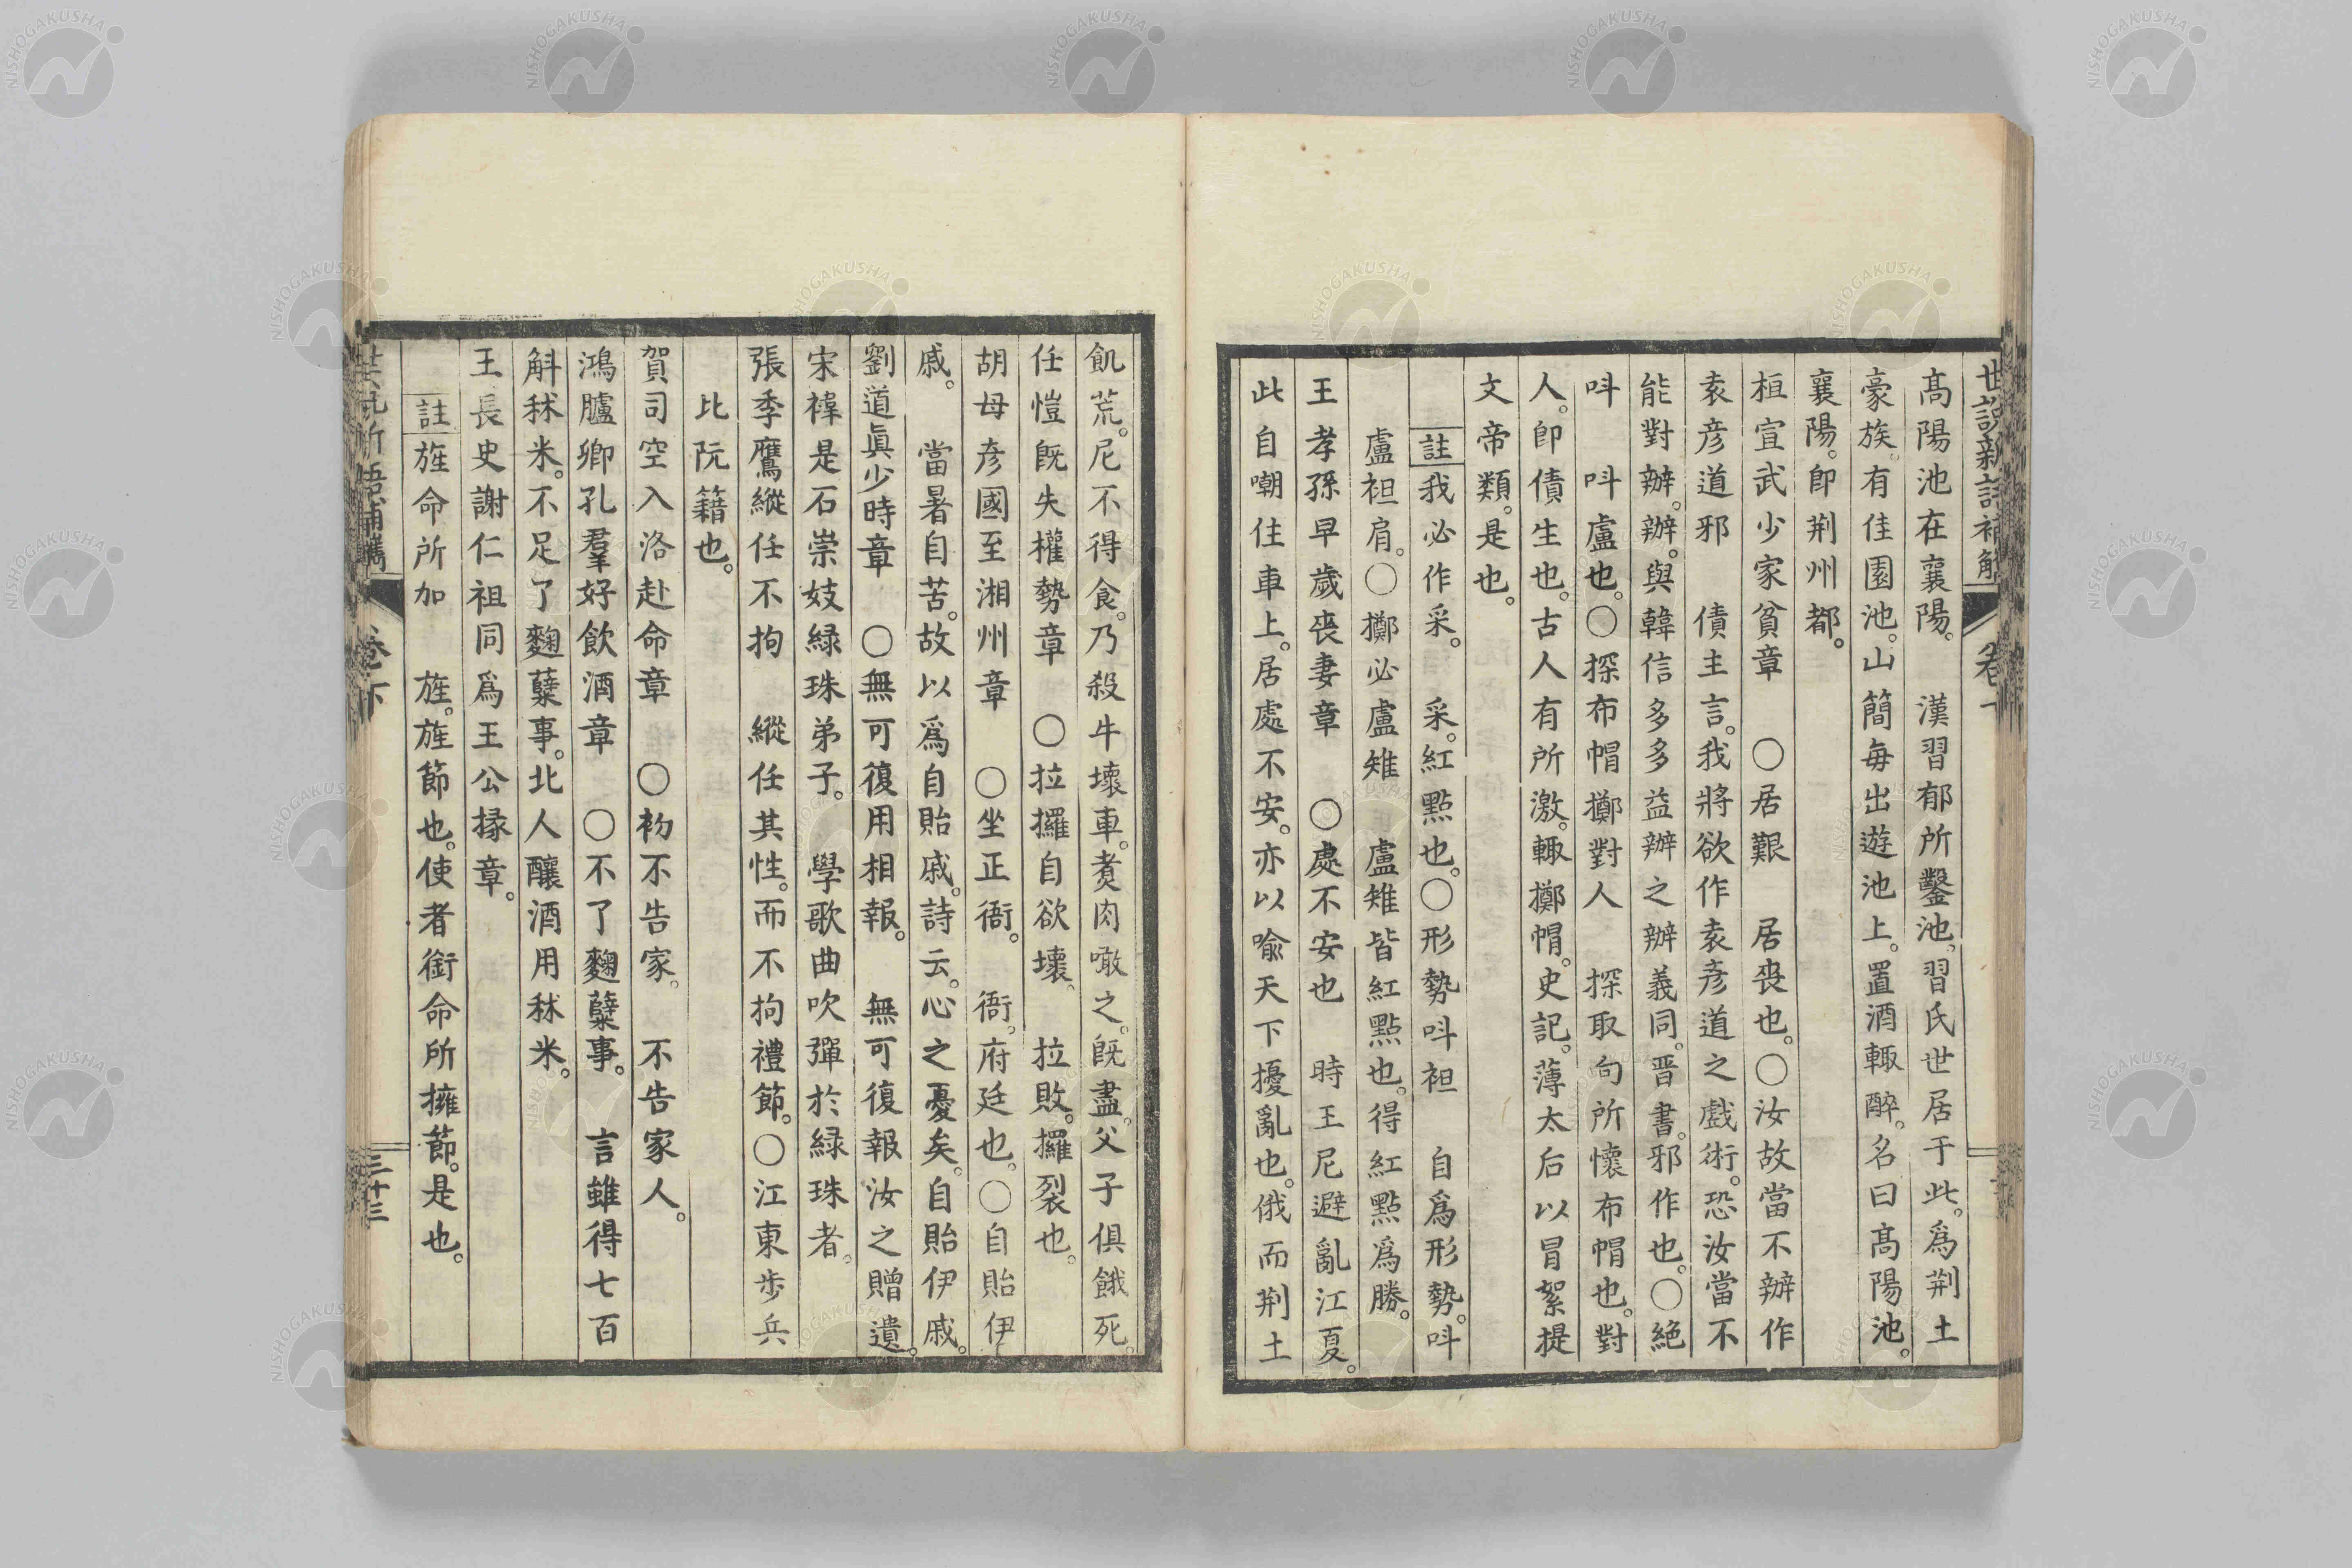 高陽池在襄陽。　漢習郁所鑿池。習氏世居于此。爲荆土
豪族。有佳園池。山簡每出遊池上。置酒輙醉。名曰高陽池。
襄陽。卽荆州都。
桓宣武少家貧章　〇居艱　居喪也。〇汝故當不辦作
袁彦道邪　債主言。我將欲作袁彦道之戲術。恐汝當不
能對辦。辦。與韓信多多益辦之辦義同。晋書。邪作也。〇絶
呌　呌盧也。〇探布帽擲對人　探取向所懷布帽也。對
人。卽債生也。古人有所激。輙擲帽。史記。薄太后以冒絮提
文帝類。是也。
註我必作采。　采。紅點也。〇形勢呌袒　自爲形勢。呌
盧袒肩。〇擲必盧雉　盧雉皆紅點也。得紅點爲勝。
王孝孫早歲喪妻章　〇處不安也　時王尼避亂江夏。
此自嘲住車上。居處不安。亦以喩天下擾亂也。俄而荆土
飢荒。尼不得食。乃殺牛壞車。煑肉噉之。旣盡。父子俱餓死。
任愷旣失權勢章　〇拉攞自欲壞。　拉敗。攞裂也。
胡母彦國至湘州章　〇坐正衙。　衙。府廷也。〇自貽伊
戚。　當暑自苦。故以爲自貽戚。詩云。心之憂矣。自貽伊戚。
劉道眞少時章　〇無可復用相報。　無可復報汝之贈遺。
宋褘是石崇妓緑珠弟子。　學歌曲吹彈於緑珠者。
張季鷹縱任不拘　縱任其性。而不拘禮節。〇江東歩兵
比阮籍也。
賀司空入洛赴命章　〇初不告家。　不告家人。
鴻臚卿孔羣好飲酒章　〇不了麴糵事。　言雖得七百
斛秫米。不足了麴糵事。北人釀酒用秫米。
王長史謝仁祖同爲王公掾章。
註旌命所加　旌。旌節也。使者銜命所擁節。是也。
三十三
NISHOGAKUSHA